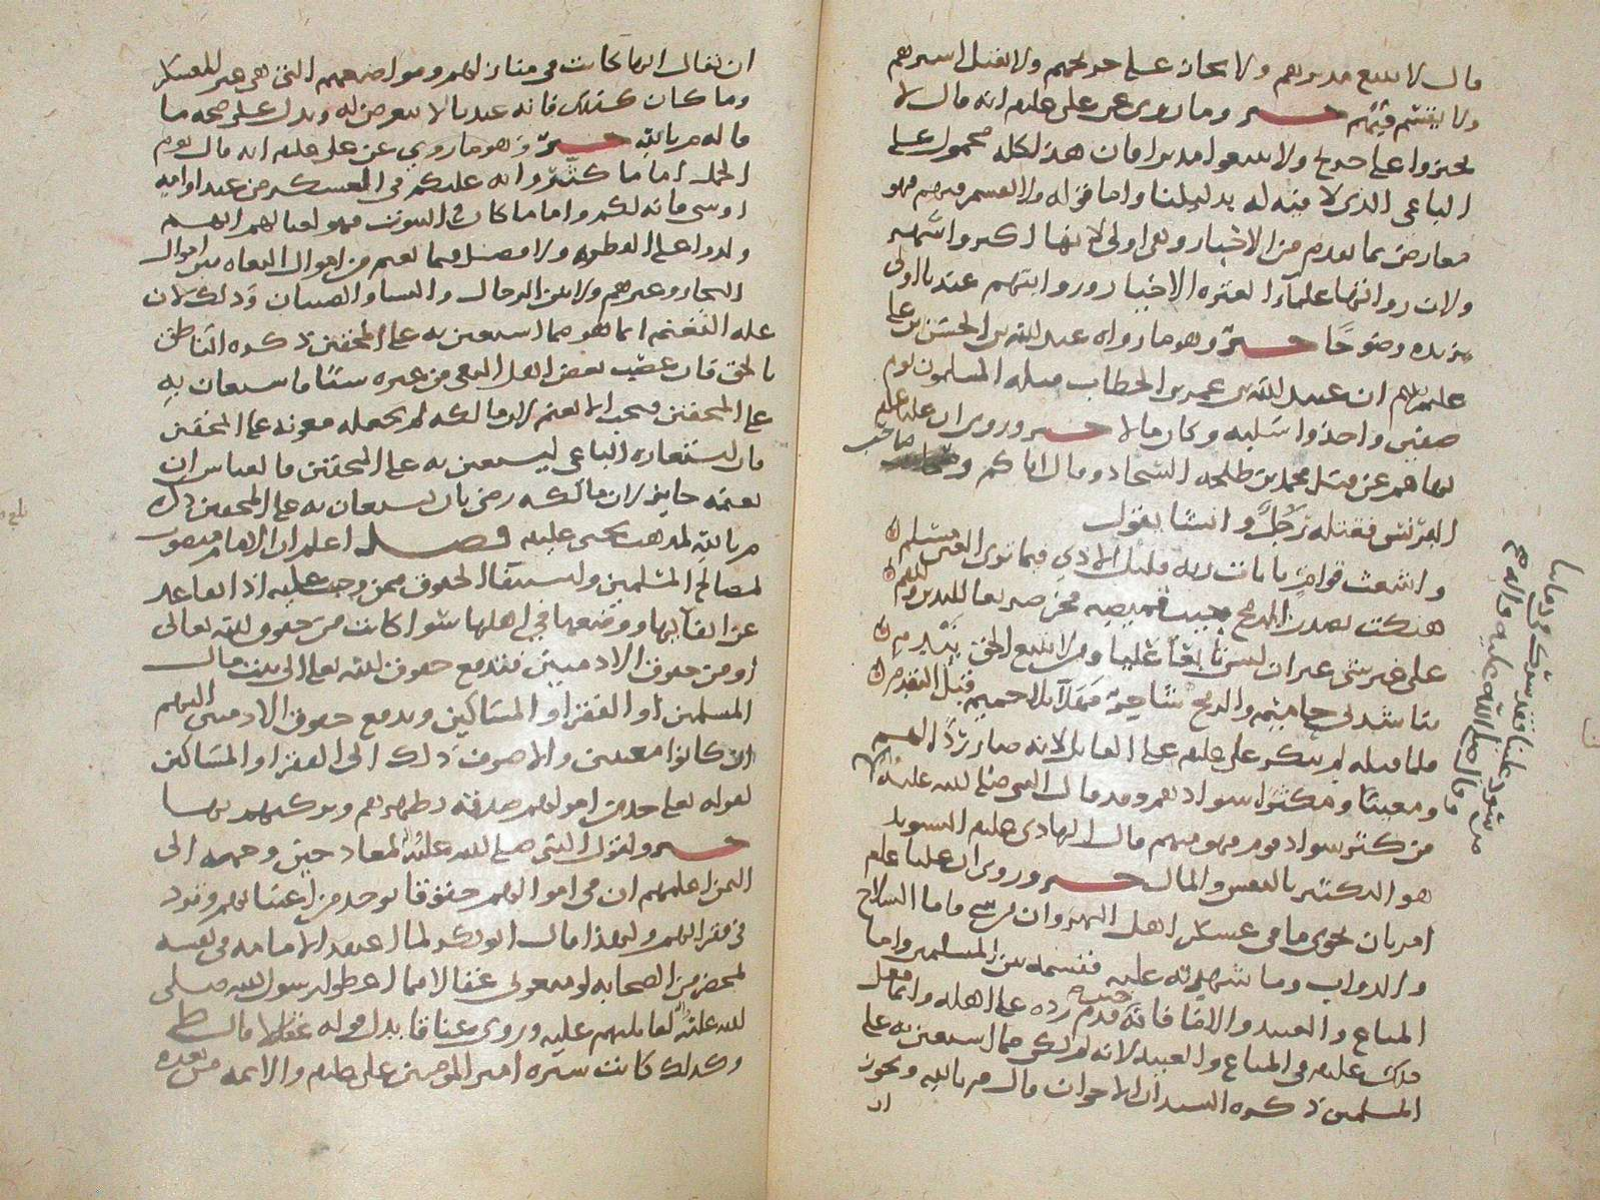 قال لا يتبع مدبرهم ولا يجاز على جريحهم ولا يقتل اسيرهم
ولا يغنم فيئهم خبر وما روي عن علي عليلم انه قال لا
تجيزوا على جريح ولا تتبعوا مدبرا فان هذا كله محمول على
الباغي الذي لا فئة له بدليلنا واما قوله ولا يقسم فيهم فهو
معارض بما تقدم من الاخبار وهي اولى لانها اكثر واشهر
ولان رواتها علماء العترة الاخيار وروايتهم عندنا اولى
يزيده وضوحا خبر وهو ما رواه عبد الله بن الحسن بن علي
عليهم ان عبيد الله بن عمر بن الخطاب قتله المسلمون يوم
صفين واخذوا سلبه وكان مالا خبر وروي ان عليا عليلم
نهاهم عن قتل محمد بن طلحة السجاد وقال اياكم وصاحب
البرنس فقتله رجل وانشا يقول
واشعث قوام بايات ربه قليل الاذى فيما ترى العين مسلم
هتكت بصدر الرمح جيب قميصه فخر صريعا لليدين وللفم
على غير شي غير ان ليس تابعا عليا ومن لا يتبع الحق يندم
يناشدني حاميم والرمح شاجر فهلا تلا حاميم قبل التقدم
فلما قتله لم ينكر علي عليلم على القاتل لانه صار ردا لهم
ومعينا ومكثرا سوادهم وقد قال النبي صلى الله عليه
من كثر سواد قوم فهو منهم قال الهادي عليلم التسويد
هو التكثير بالنفس والمال خبر وروي ان عليا عليلم
امر بان تحوى ما في عسكر اهل النهروان من شي فاما السلاح
والدواب وما شهدته عليه فقسمه بين المسلمين واما
المتاع والعبيد والاماء فانه حين قدم رده على اهله وانما فعل
ذلك عليلم في المتاع والعبيد لانه لم يكن مما استعين به على
المسلمين ذكره السيدان الاخوان قال م بالله ويجوز
ان
ما لنا وقد سترك من شهود علينا
فقال صلى الله عليه واله
ان يقال انها كانت في منازلهم ومواضعهم التي هي غير المعسكر
وما كان كذلك فانه عندنا لا يتعرض له ويدل على صحة ما
قاله م بالله خبر وهو ما روي عن علي عليلم انه قال يوم
الجمل اما ما كثروا به عليكم في المعسكر من عبد او امة
او شي فانه لكم واما ما كان في البيوت فهو لعيالهم
ولا فصل فيما يغنم من اموال البغاة بين اموال
التجار وغيرهم ولا بين الرجال والنسا والصبيان وذلك لان
علة التغنم انما هو مما استعين به على المحقين ذكره الناطق
بالحق فان غصب بعض اهل البغي من غيره شيئا فاستعان به
على المحقين وجب الا يغنم لان مالكه لم يجعله معونة على المحقين
فان استعاره الباغي ليستعين به على المحقين فالقياس ان
تغنمه جايز لان مالكه رضي بان يستعان به على المحقين ذكره
م بالله لمذهب يحيى عليه فصل اعلم ان الامام منصوب
لمصالح المسلمين واستيفا الحقوق ممن وجبت عليه اذا تقاعد
عن ايفائها ووضعها في اهلها سوا كانت من حقوق الله تعالى
او من حقوق الادميين فتدفع حقوق الله تعالى الى بيت مال
المسلمين او الفقرا والمساكين ويدفع حقوق الادميين اليهم
ان كانوا معينين والا صرف ذلك الى الفقرا والمساكين
لقوله تعالى خذ من اموالهم صدقة تطهرهم وتزكيهم بها
خبر ولقول النبي صلى الله عليه لمعاذ حين وجهه الى
اليمن اعلمهم ان في اموالهم حقوقا توخذ من اغنيائهم وترد
في فقرائهم ولهذا قال ابو بكر لما اعتقد الامامة في نفسه
بمحضر من الصحابة لو منعوني عقالا مما اعطوا رسول الله صلى
الله عليه لقاتلتهم عليه وروي عناقا بدل قوله عقالا قال ط
وكذلك كانت سيرة امير المومنين علي عليلم والائمة من بعده